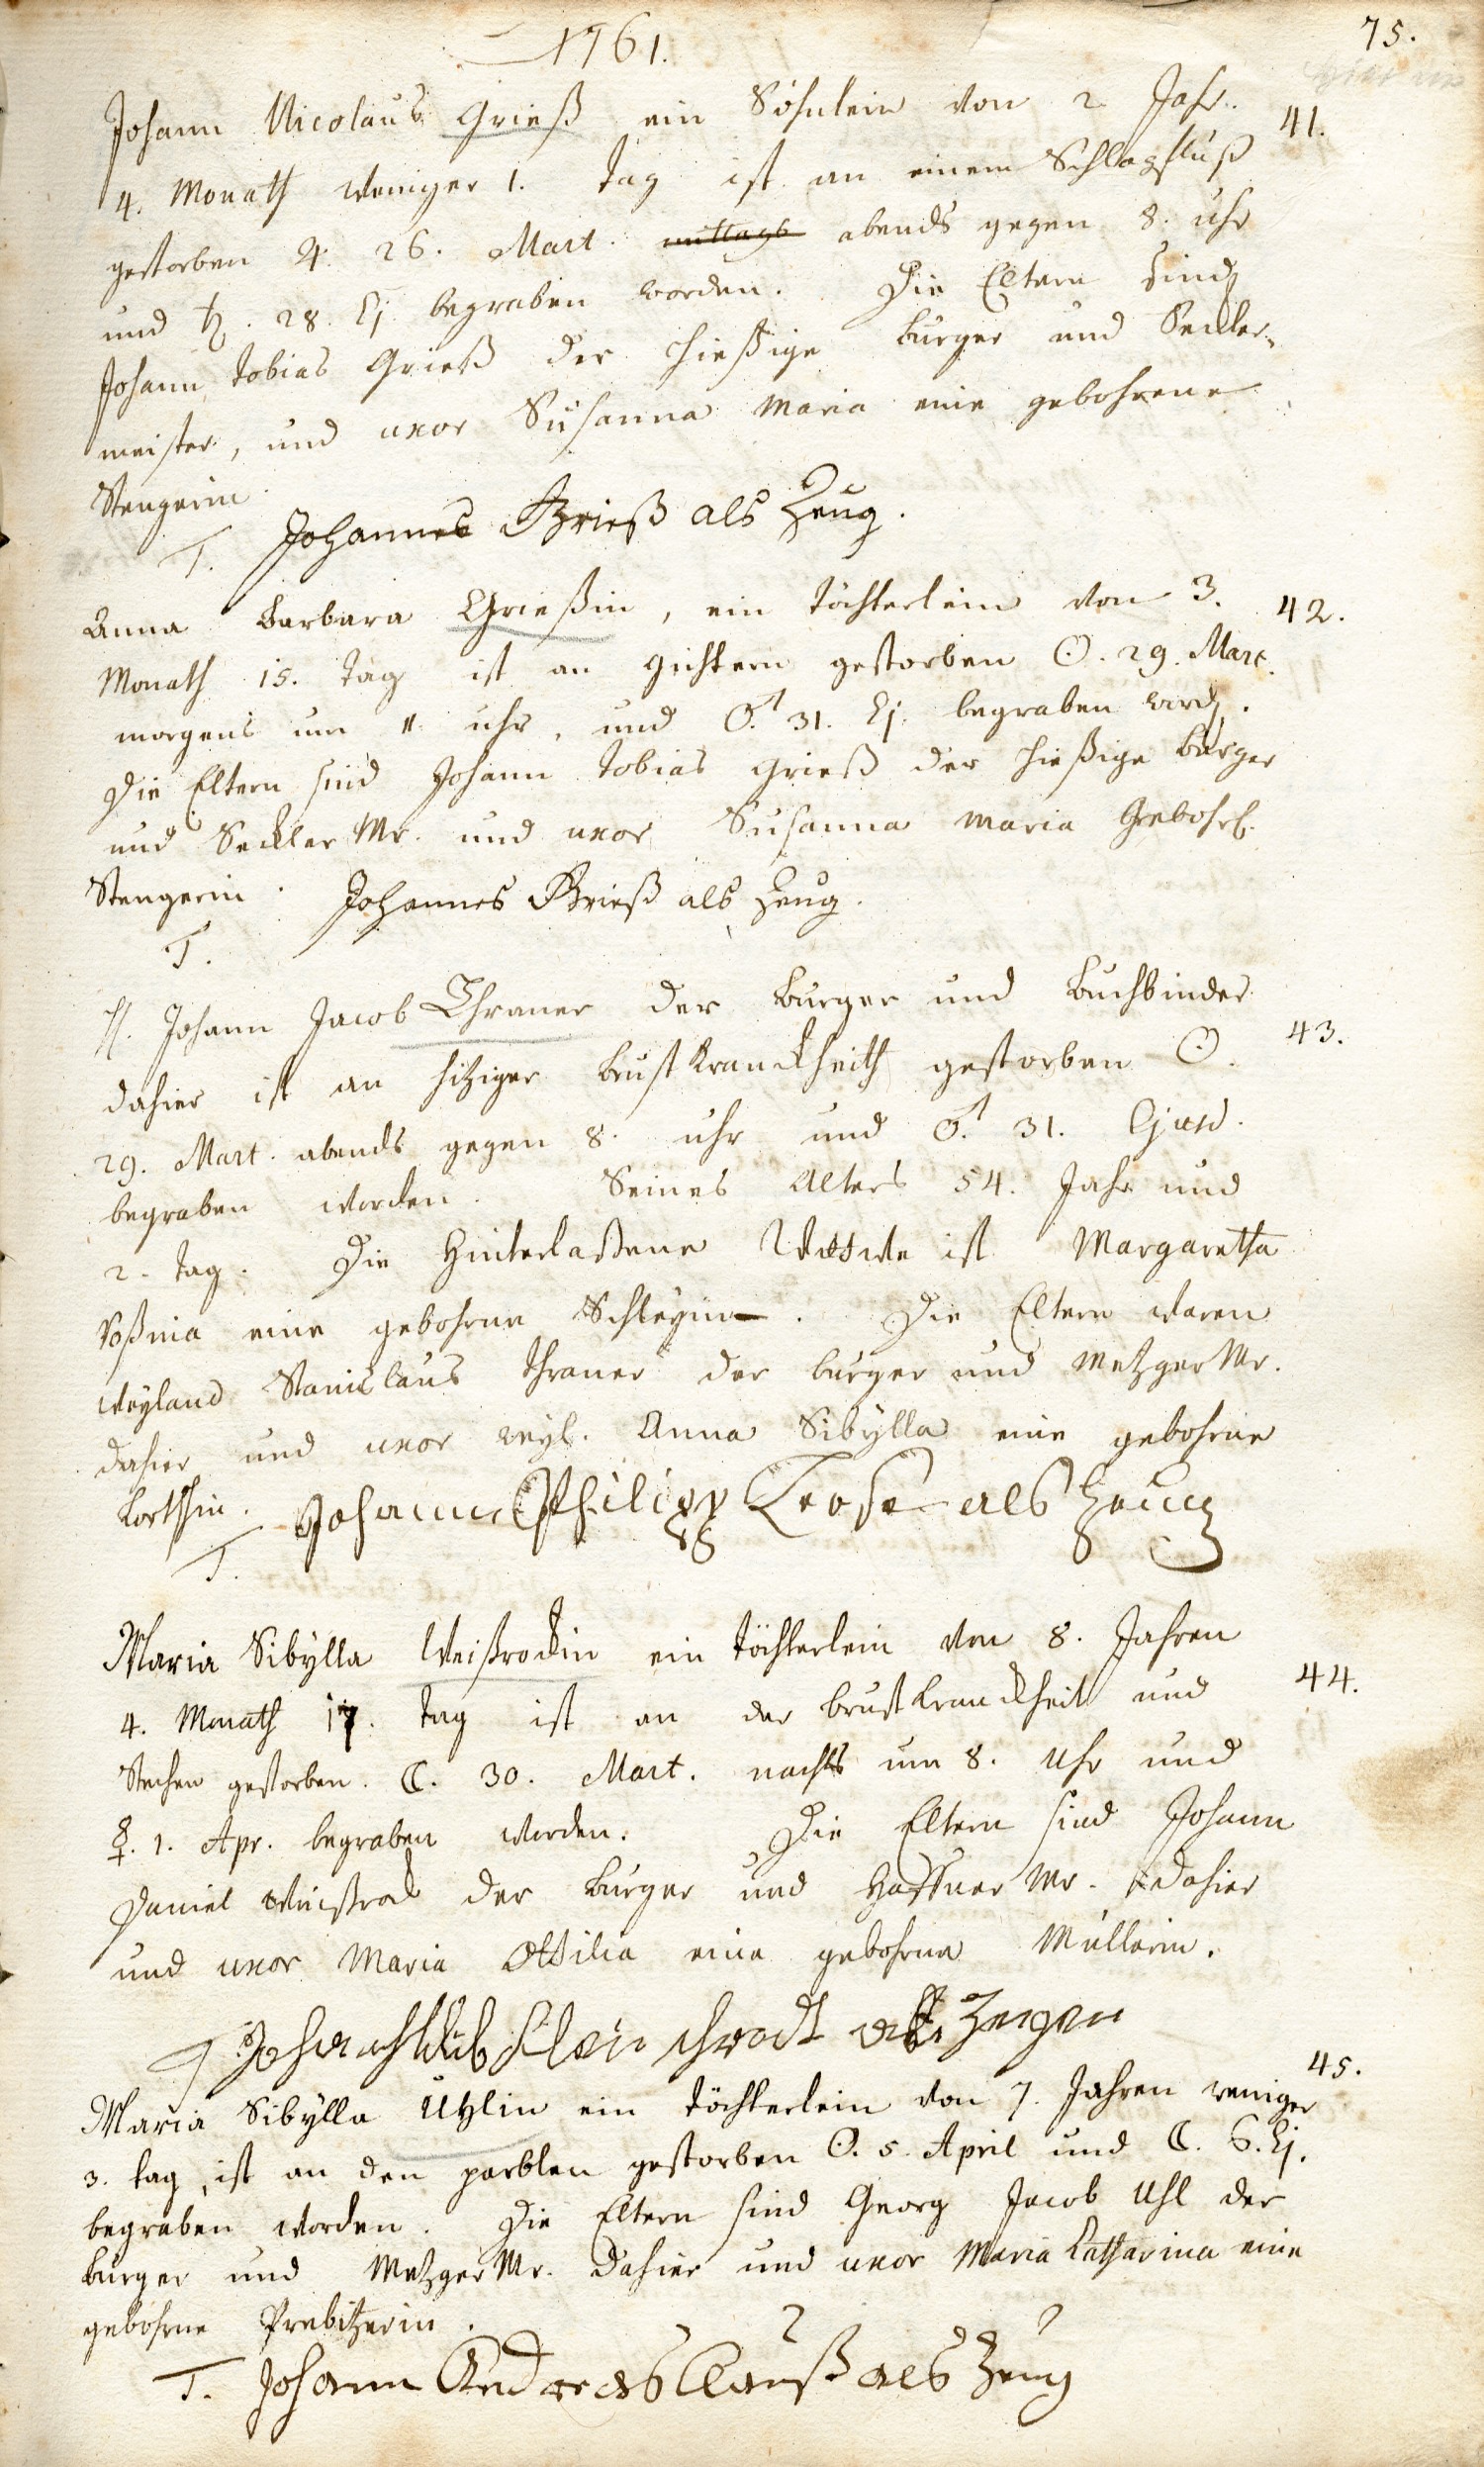 1761.
75.
Johann Nicolaus Grieß ein Söhnlein von 2 Jahr. 41.
4. Monath weniger 1. tag ist an einem Schlagfluß
gestorben ♃. 26. Mart. mittags abends gegen 8. uhr
und ♄. 28. Ej. begraben worden. Die Eltern sind
Johann Tobias Grieß der hießige burger und Seckler-
meister, und uxor Susanna Maria eine gebohrene
Stengerin.
T. Johannes Grieß als Zeug.
Anna Barbara Grießin, ein töchterlein von 3. 42.
Monath 15. tag ist an Gichtern gestorben ☉. 29. Mart.
morgens um 11 uhr, und ♂. 31. Ej. begraben word.
Die Eltern sind Johann Tobias Grieß der hießige burger
und Seckler Mr. und uxor Susanna Maria Gebohrl.
Stengerin. Johannes Grieß als Zeug.
T.
H. Johann Jacob Thraner der burger und buchbinder 43.
dahier ist an hitziger brust kranckheith gestorben ☉.
29. Mart. abends gegen 8. uhr und ♂. 31. Ejusd.
begraben worden. Seines Alters 54. Jahr und
2. tag. Die hinterlaßene Wittwe ist Margaretha
Roßina eine gebohrne Schlegin. Die Eltern waren
weyland Stanislaus Thraner der burger und Metzger Mr.
dahier und uxor weyl. Anna Sibylla eine gebohrne
Korthin. Johann Philipp Leose als Zeug
T.
Maria Sibylla Weißrockin ein töchterlein von 8. Jahren
4. Monath 17. tag ist an der brust kranckheit und 44.
Stechen gestorben. ☾. 30. Mart. nachts um 8. Uhr und
☿. 1. Apr. begraben worden. Die Eltern sind Johann
Daniel Weißrock der burger und Haffner Mr. dahier
und uxor Maria Ottilia eine gebohrne Müllerin.
als Zeugen
Maria Sibylla Uhlin ein töchterlein von 7. Jahren weniger 45.
3. tag, ist an den parblen gestorben ☉. 5. April und ☾. 6. Ej.
begraben worden. Die Eltern sind Georg Jacob Uhl der
burger und Metzger Mr. dahier und uxor Maria Catharina eine
gebohrne Prebitzerin.
T. Johann Andreas Clauß als Zeug